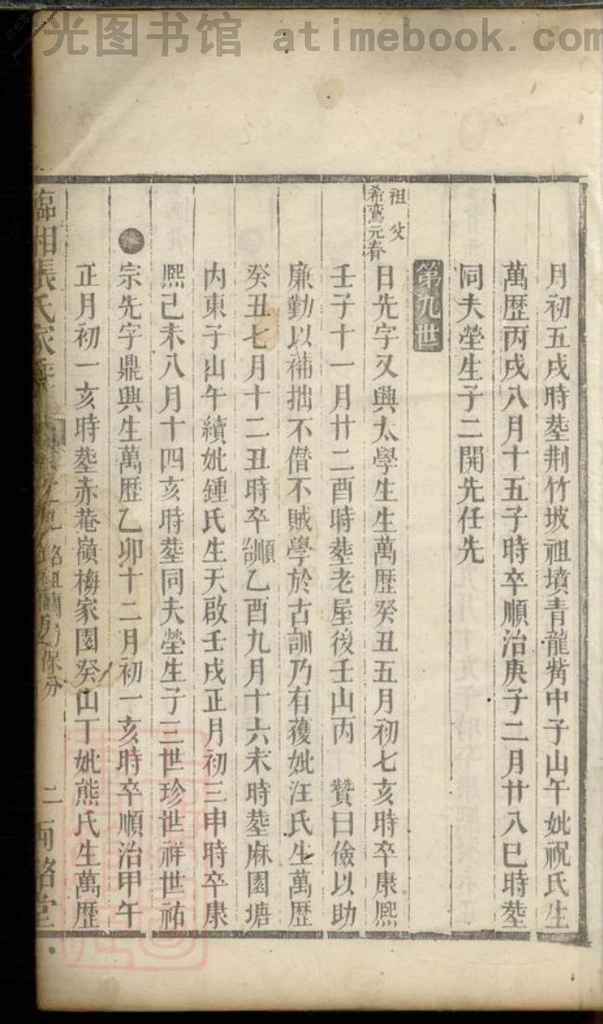 光图书馆 atimebook.com
月初五戌時塟荆竹坡祖墳青龍觜中子山午妣祝氏生
萬歷丙戌八月十五子時卒順治庚子二月廿八巳時塟
同夫塋生子二開先任先
第九世
祖父
希鸞元春
日先字又興太學生生萬歷癸丑五月初七亥時卒康熙
壬子十一月廿二酉時塟老屋後壬山丙 贊曰儉以助
廉勤以補拙不僭不賊學於古訓乃有獲妣汪氏生萬歷
癸丑七月十二丑時卒順乙酉九月十六未時塟麻園塘
内東子山午續妣鍾氏生天啟壬戌正月初三申時卒康
熙己未八月十四亥時塟同夫塋生子三世珍世祥世祐
宗先字鼎興生萬歷乙卯十二月初一亥時卒順治甲午
正月初一亥時塟赤菴嶺梅家園癸山丁妣熊氏生萬歷
臨湘張氏家譜
二